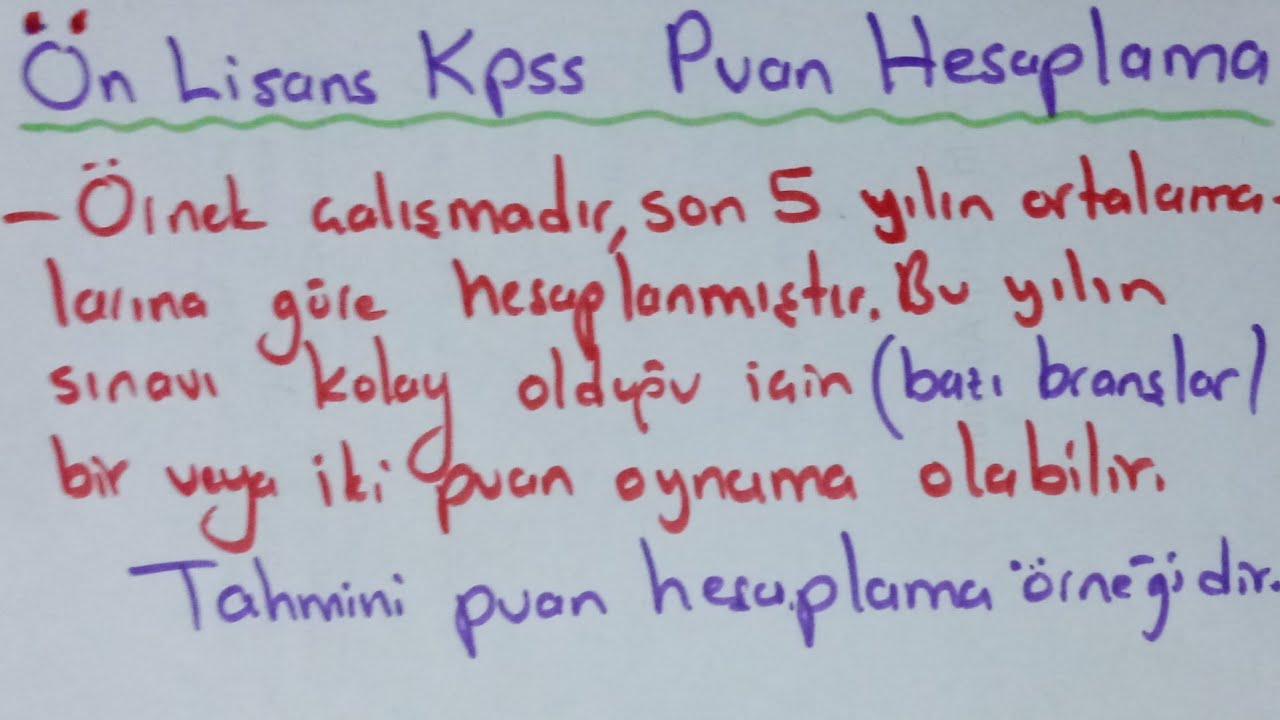 Ön Lisans Kpss Puan Hesaplama
- Örnek çalışmadır, son 5 yılın ortalama-
larına göre hesaplanmıştır. Bu yılın
sınavı kolay olduğu için (bazı branşlar)
bir veya iki puan oynama olabilir.
Tahmini puan hesaplama örneğidir.